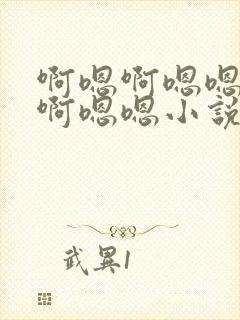 啊嗯啊嗯嗯
啊嗯嗯小說
武異1